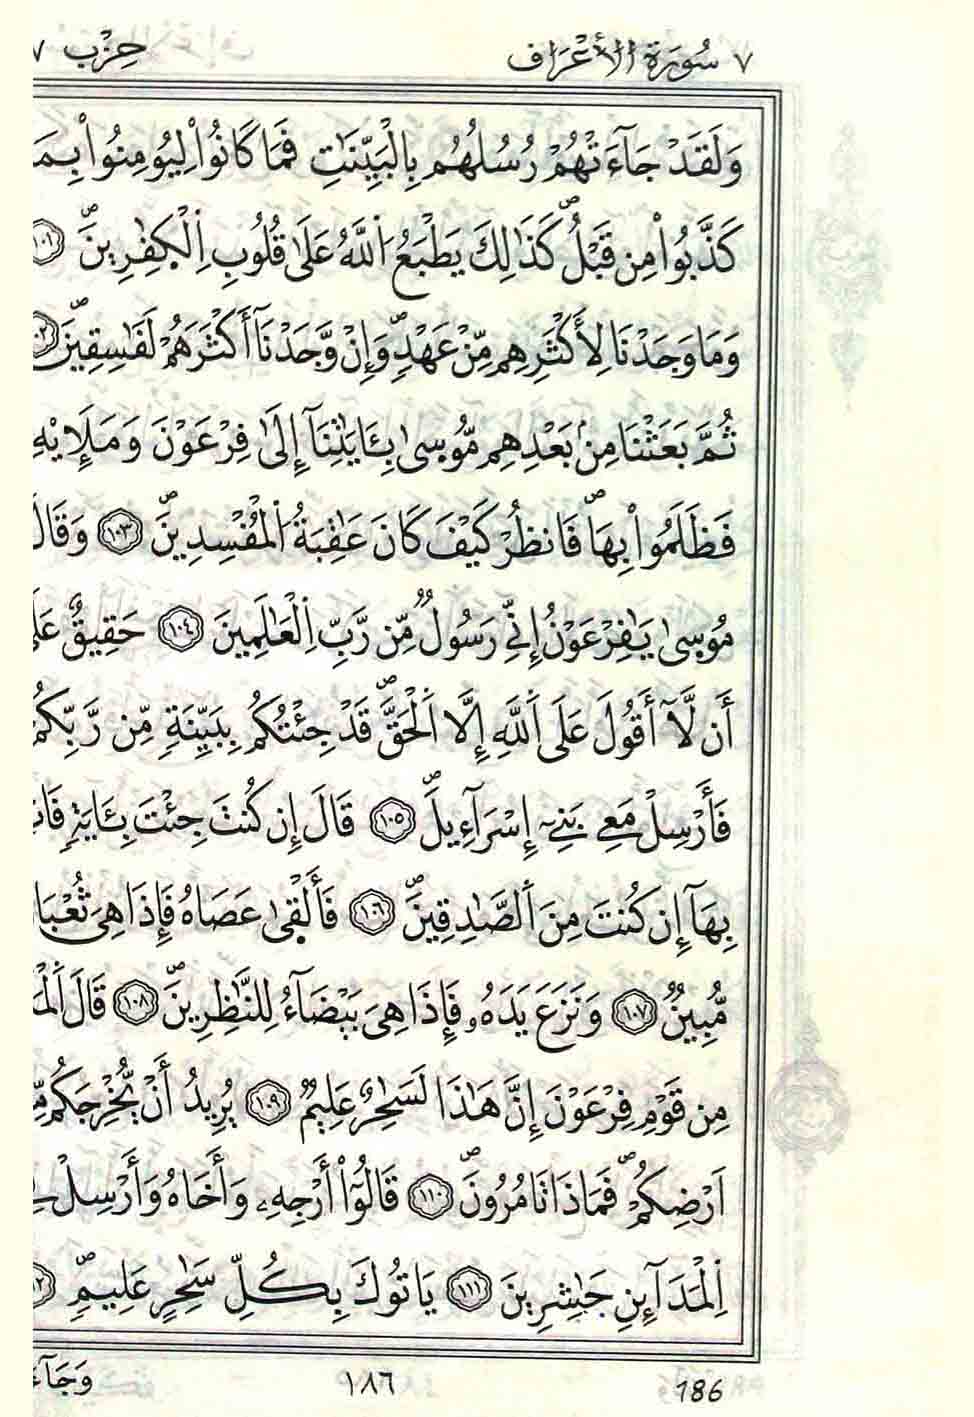 ٧ سُورَةُ الْأَعْرَافِ حِزْب
وَلَقَدْ جَآءَتْهُمْ رُسُلُهُم بِالْبَيِّنَٰتِ فَمَا كَانُواْ لِيُومِنُواْ بِمَا
كَذَّبُواْ مِن قَبْلُ كَذَٰلِكَ يَطْبَعُ اَللَّهُ عَلَىٰ قُلُوبِ اِلْكَٰفِرِينَ ١٠١
وَمَا وَجَدْنَا لِأَكْثَرِهِم مِّنْ عَهْدٍ وَإِنْ وَّجَدْنَآ أَكْثَرَهُمْ لَفَٰسِقِينَ
ثُمَّ بَعَثْنَا مِنۢ بَعْدِهِم مُّوسىٰ بِـَٔايَٰتِنَآ إِلَىٰ فِرْعَوْنَ وَمَلَإِيْهِ
فَظَلَمُواْ بِهَا فَانظُرْ كَيْفَ كَانَ عَٰقِبَةُ اُلْمُفْسِدِينَ ١٠٣ وَقَالَ
مُوسىٰ يَٰفِرْعَوْنُ إِنِّي رَسُولٌ مِّن رَّبِّ اِلْعَٰلَمِينَ ١٠٤ حَقِيقٌ عَلَىَّ
أَن لَّآ أَقُولَ عَلَى اَللَّهِ إِلَّا اَلْحَقَّ قَدْ جِئْتُكُم بِبَيِّنَةٍ مِّن رَّبِّكُمْ
فَأَرْسِلْ مَعِے بَنِےٓ إِسْرَآءِيلَ ١٠٥ قَالَ إِن كُنتَ جِئْتَ بِـَٔايَةٍ
بِهَآ إِن كُنتَ مِنَ اَلصَّٰدِقِينَ ١٠٦ فَأَلْقىٰ عَصَاهُ فَإِذَا هِىَ ثُعْبَانٌ
مُّبِينٌ ١٠٧ وَنَزَعَ يَدَهُۥ فَإِذَا هِىَ بَيْضَآءُ لِلنَّٰظِرِينَ ١٠٨ قَالَ
مِن قَوْمِ فِرْعَوْنَ إِنَّ هَٰذَا لَسَٰحِرٌ عَلِيمٌ ١٠٩ يُرِيدُ أَنْ يُّخْرِجَكُم
اَرْضِكُمْ فَمَاذَا تَامُرُونَ ١١٠ قَالُوٓاْ أَرْجِهِۦ وَأَخَاهُ وَأَرْسِلْ
اِلْمَدَآئِنِ حَٰشِرِينَ ١١١ يَاتُوكَ بِكُلِّ سَٰحِرٍ عَلِيمٍ
186 ١٨٦ وَجَآءَ